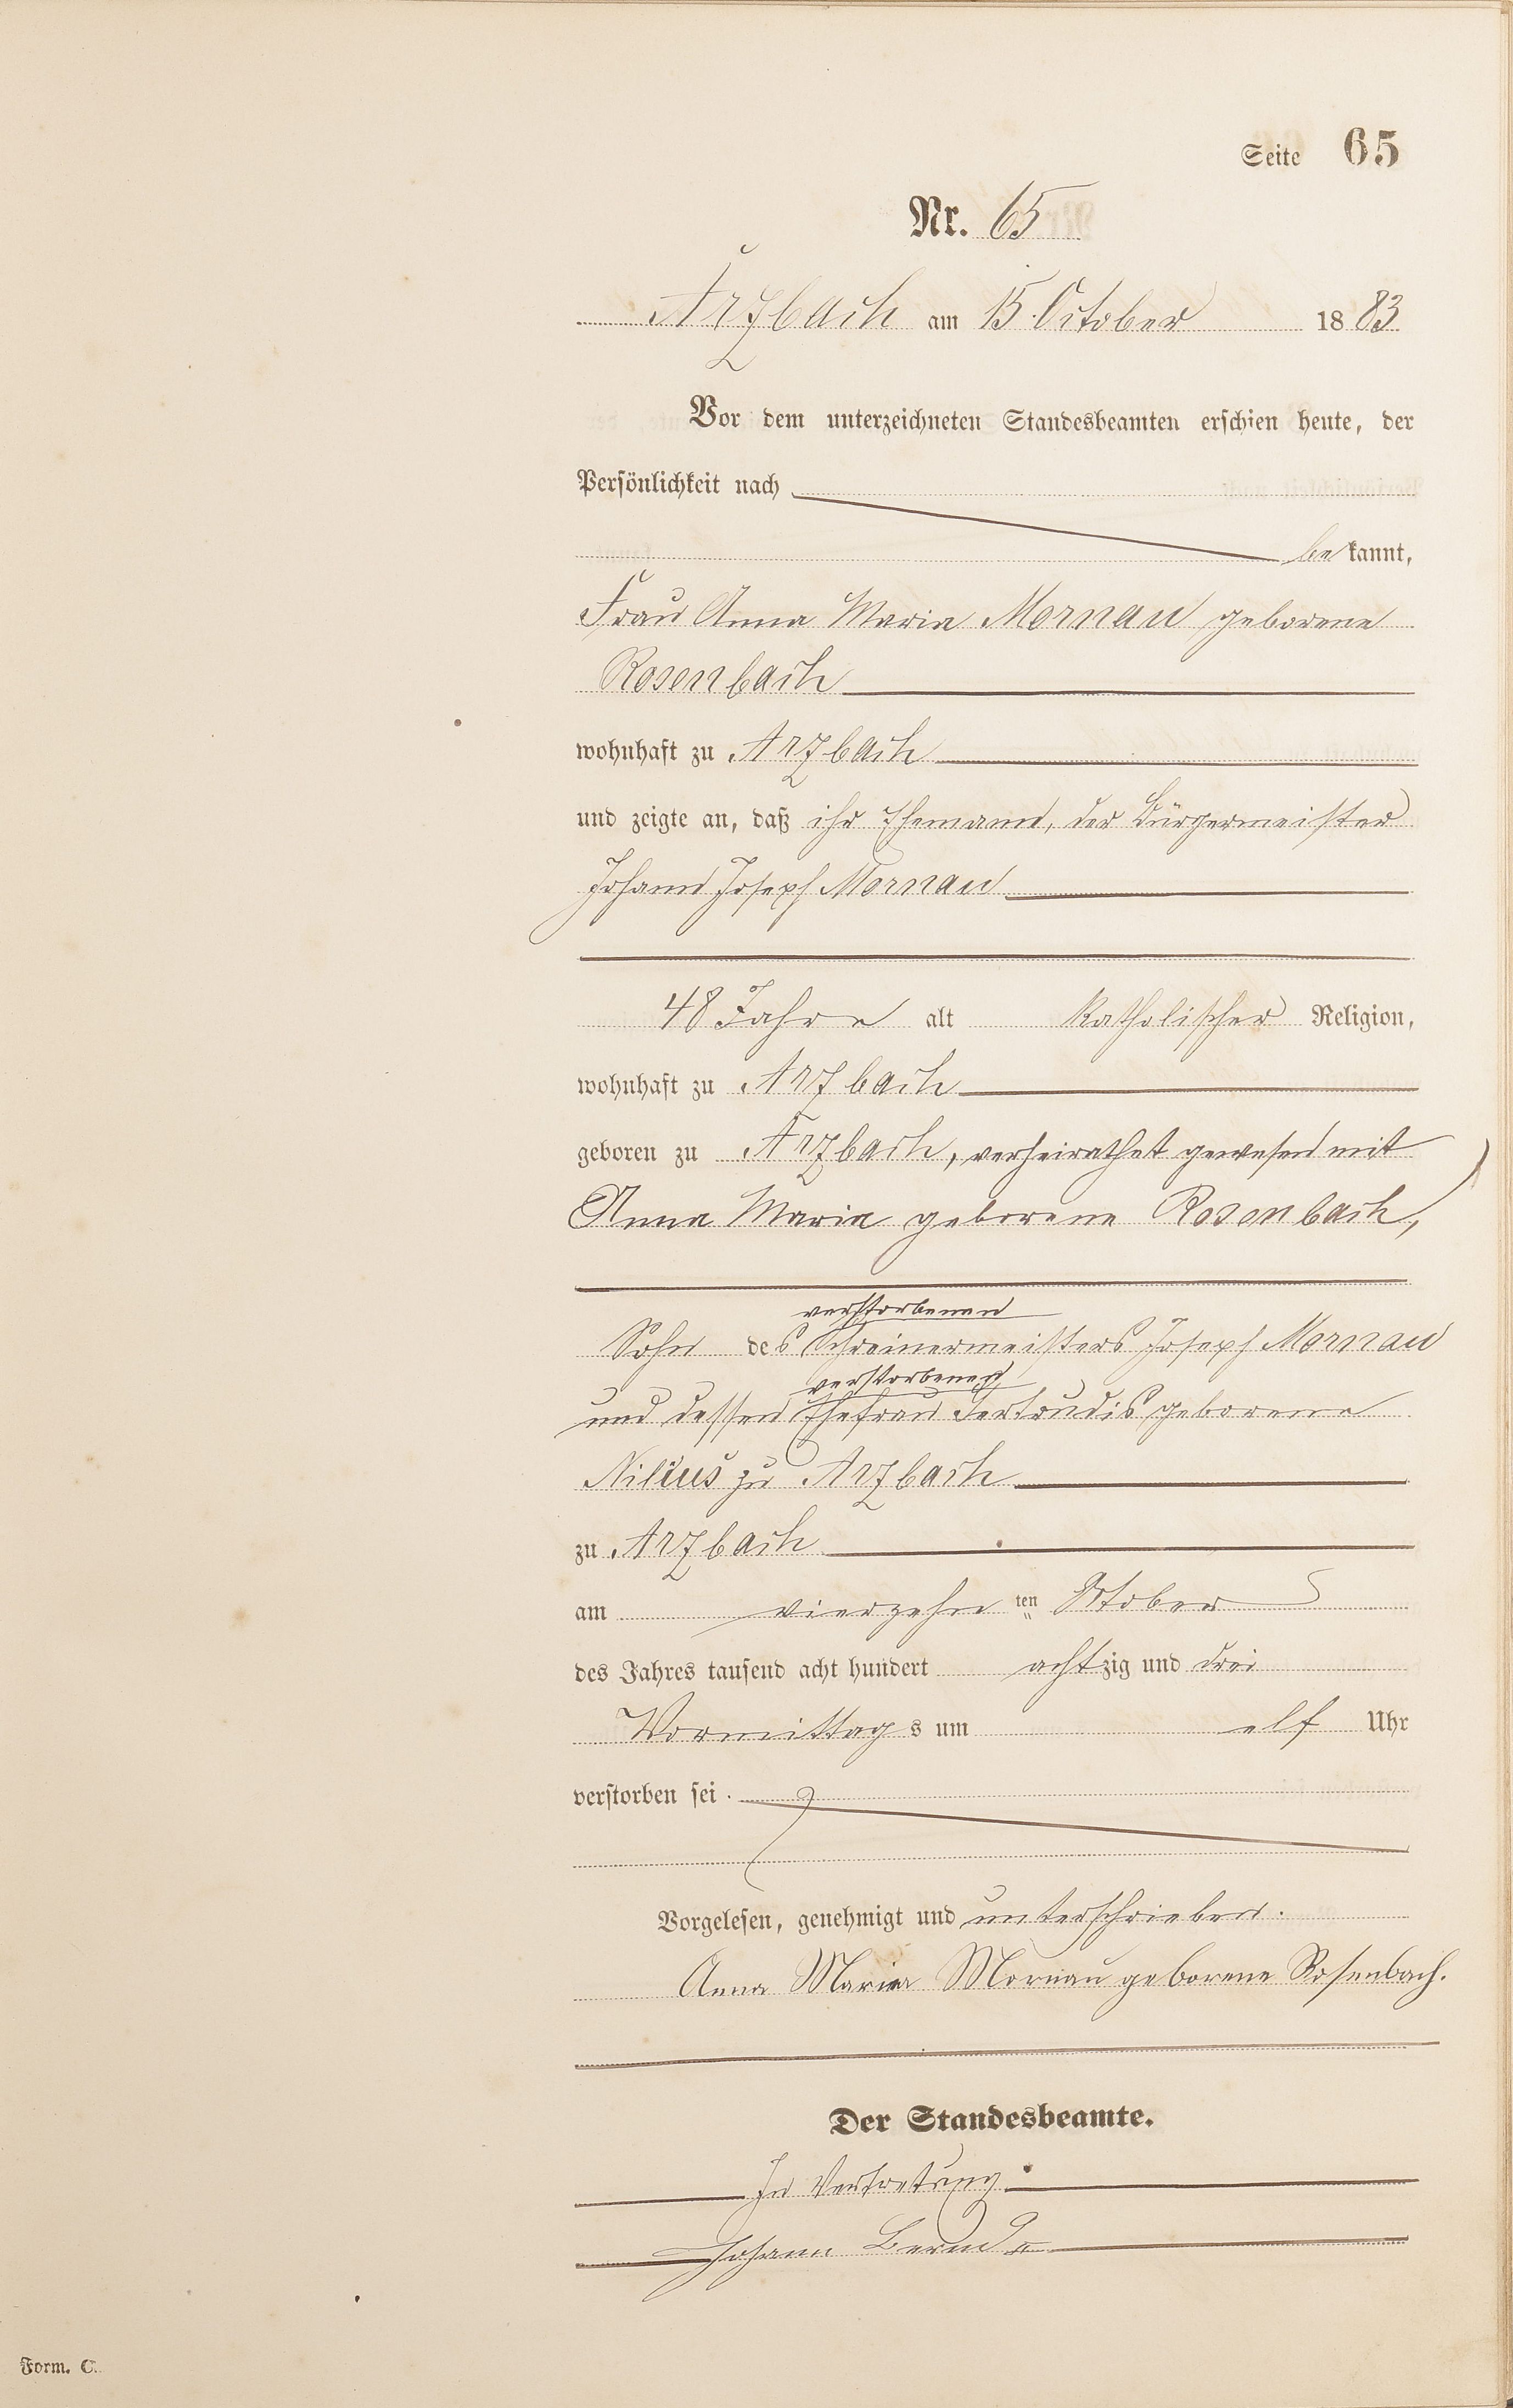 Seite 65
Nr. 65
Arzbach am 15. October 1883
Vor dem unterzeichneten Standesbeamten erschien heute, der
Persönlichkeit nach
bekannt,
Frau Anna Maria Mornau geborene
Rosenbach
wohnhaft zu Arzbach
und zeigte an, daß ihr Ehemann, der Bürgermeister
Johann Joseph Mornau
48 Jahre alt katholischer Religion,
wohnhaft zu Arzbach
geboren zu Arzbach, verheirathet gewesen mit
Anna Maria geborene Rosenbach,
verstorbenen
Sohn des Schreinermeisters Joseph Mornau
verstorbenen
und dessen Ehefrau Gertrudis geborene
Nilius zu Arzbach
zu Arzbach
am vierzehn ten October
des Jahres tausend acht hundert achtzig und drei
Vormittags um elf Uhr
verstorben sei.
Vorgelesen, genehmigt und unterschrieben.
Anna Maria Mornau geborene Rosenbach.
Der Standesbeamte.
In Vertretung:
Johann
Form. C.